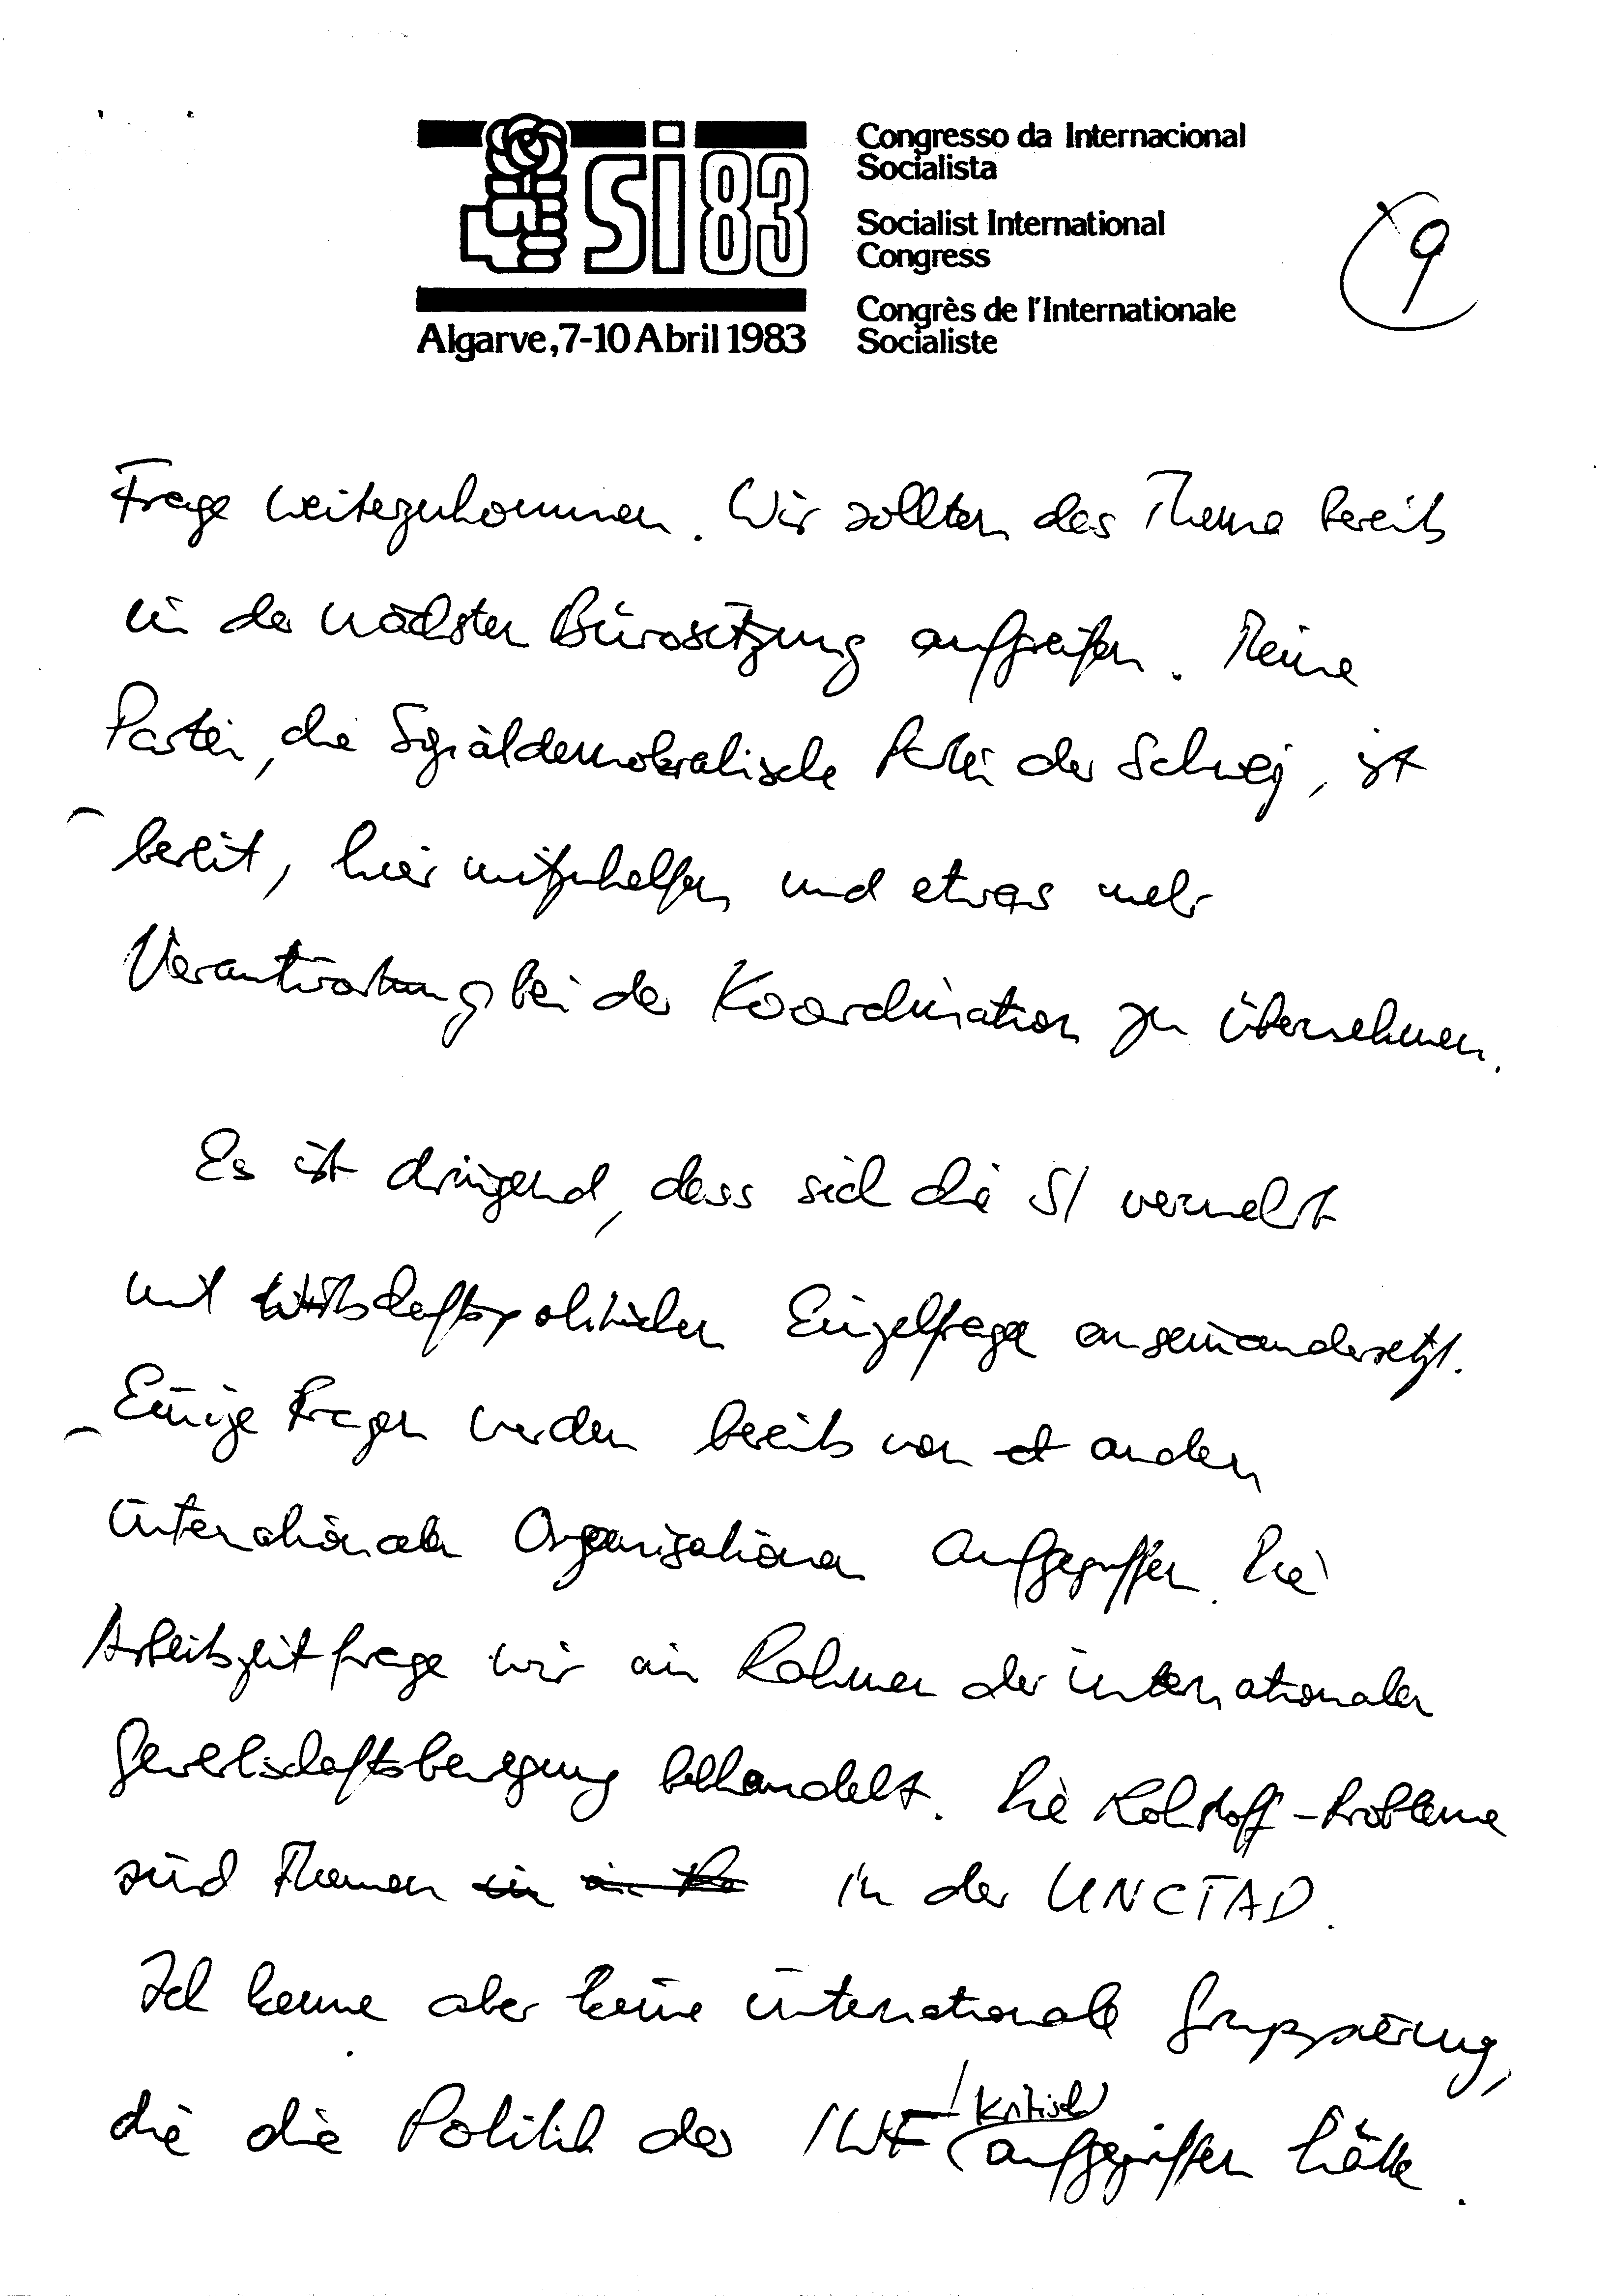 si 83
Algarve, 7-10 Abril 1983
Congresso da Internacional
Socialista
Socialist International
Congress
Congrès de l'Internationale
Socialiste
9
Frage weiterzukommen. Wir sollten das Thema bereits
in der nächsten Bürositzung aufgreifen. Meine
Partei, die Sozialdemokratische Partei der Schweiz, ist
bereit, hier mitzuhelfen und etwas mehr
Verantwortung bei der Koordination zu übernehmen.
Es ist dringend, dass sich die SI vermehrt
mit wirtschaftspolitischen Einzelfragen auseinandersetzt.
Einige Fragen werden bereits von andern
internationalen Organisationen aufgegriffen. Die
Arbeitszeitfrage wir im Rahmen der internationalen
Gewerkschaftsbewegung behandelt. Die Rohstoff-Probleme
sind Themen in der UNCTAD.
Ich kenne aber keine internationale Gruppierung,
die die Politik des IWF kritisch aufgegriffen hätte.